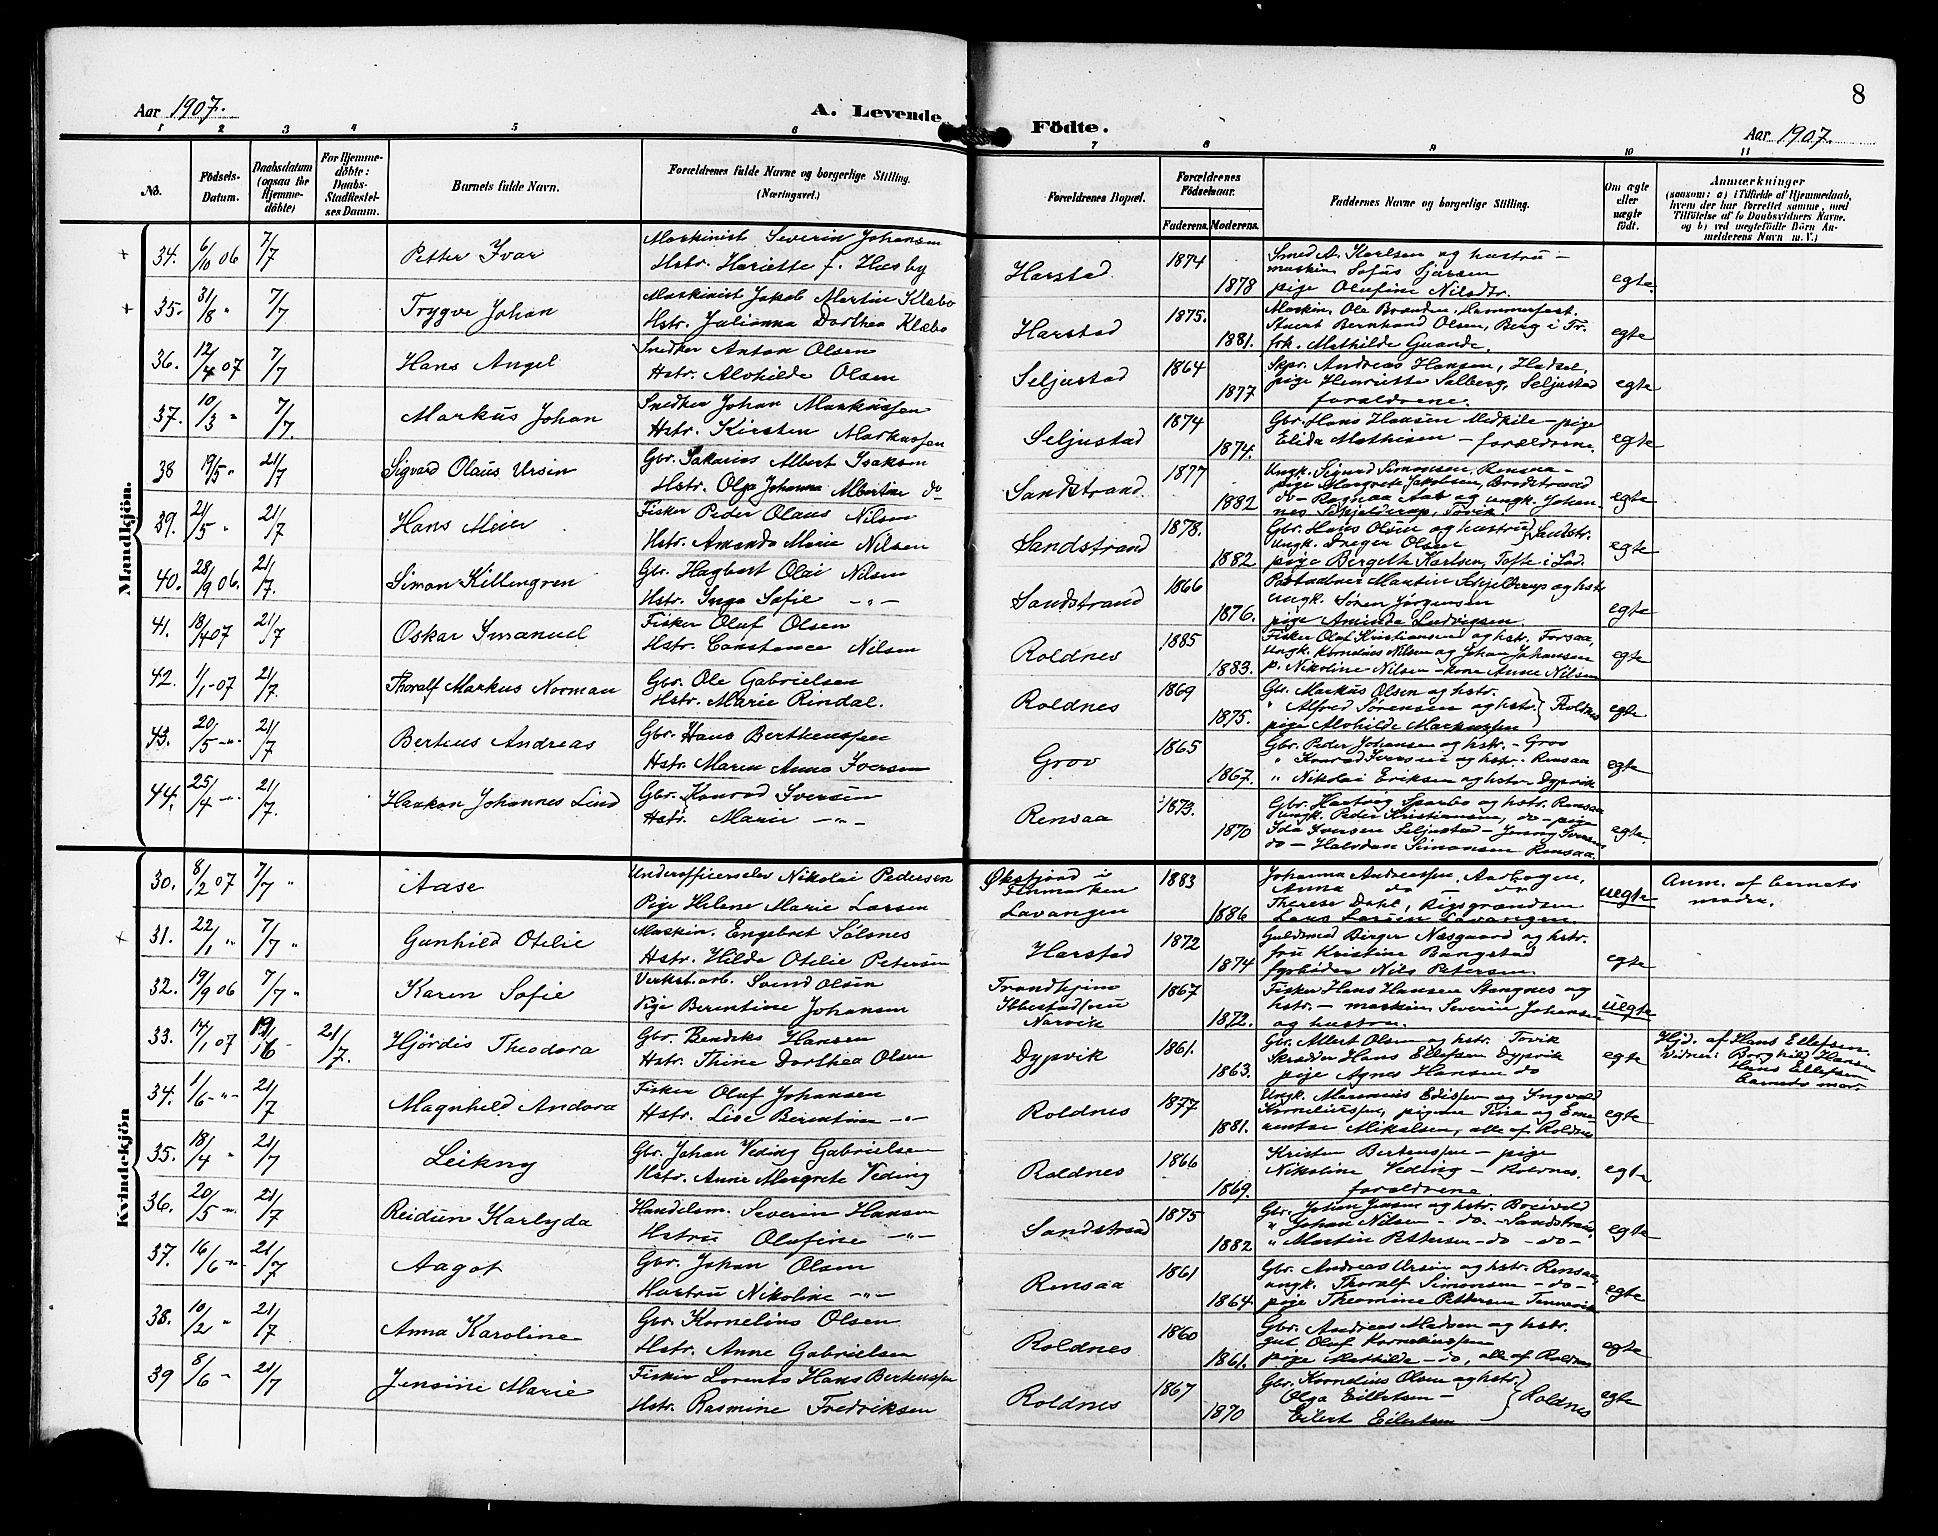 8
Aar 1907.
A. Levende
Födte.
Aar 1907.
1 2 3 4 5 6 7 8 9 10 11
No.
Födsels-
Datum.
Daabsdatum
(ogsaa for
Hjemme-
döbte)
For Hjemme-
döbte:
Daabs-
Stadfæstel-
ses Datum.
Barnets fulde Navn.
Forældrenes fulde Navne og borgerlige Stilling.
(Næringsvei.)
Forældrenes Bopæl.
Forældrenes
Födselsaar.
Faderens.
Moderens.
Faddernes Navne og borgerlige Stilling.
Om ægte
eller
uægte
födt.
Anmærkninger
(saasom: a) i Tilfælde af Hjemmedaab,
hvem der har forrettet samme, med
Tilföielse af to Daabsvidners Navne.
og b) ved uægtefödte Börn An-
melderens Navn m. V.)
Mandkjön.
34. 6/10 06 7/7 Petter Ivar
Maskinist Severin Johansen
Hstr. Hariette f. Hæsby
Harstad. 1874 1878
Smed A. Karlsen og hustru –
maskin. Sofus
pige Olufine Nilsdtr.
egte.
35. 31/8 " 7/7 Trygve Johan
Maskinist Jakob Martin Klæbo
Hstr. Julianna Dorthea Klæbo
Harstad 1875. 1881.
Maskin. Ole Brandsen, Hammerfest.
Stuert Bernhard Olsen, Berg i Tr.
frk. Mathilde
egte
36. 12/4 07 7/7 Hans Angel
Snedker Anton Olsen
Hstr. Alvhilde Olsen
Seljustad 1864 1877
Skpr. Andreas Hansen, Hadsel,
pige Henriette Solberg, Seljustad
forældrene.
egte
37. 10/3 " 7/7. Markus Johan
Snedker Johan Markussen
Hstr. Kirsten Markussen
Seljustad 1874 1874.
Gbr. Hans Hansen Medkile – pige
Elida Mathisen – forældrene.
egte
38 19/5 " 21/7 Sigvard Olaus Ursin
Gbr. Sakarias Albert Isaksen
Hstr. Olga Johanna Albertine do
Sandstrand. 1877 1882
Ungk. Sigurd Simonsen, Rensaa –
pige Margrete Jakobsen, Brodstrand
do – Ragnaa Aab og ungk. Johan-
nes Schjelderup, Tovik.
egte
39. 21/5 " 21/7 Hans Meier
Fisker Peder Olaus Nilsen
Hstr. Amanda Marie Nilsen
Sandstrand 1878. 1882
Gbr. Hans Olsen og hustru } Sandstr.
Ungk. Olsen
pige Bergette Karlsen, Tofte i Lød.
egte
40. 28/9 06. 21/7. Simon Killengren
Gbr. Hagbart Olai Nilsen
Hstr. Inga Sofie – " –
Sandstrand 1866 1876.
Postaabner Martin Schjelderup og hstr.
Ungk. Sören Jörgensen
pige Aminda Ludvigsen
egte
41. 18/4 07 21/7 Oskar Imanuel
Fisker Oluf Olsen
Hstr. Constance Nilsen
Roldnes 1885 1883.
Fisker Olaf Kristiansen og hstr. Forsaa,
Ungk. Kornelius Nilsen og Johan Johansen
p. Nikoline Nilsen – kone Anne Nilsen
egte
42. 1/1 – 07 21/7. Thoralf Markus Norman
Gbr. Ole Gabrielsen
Hstr. Marie Rindal.
Roldnes 1869 1875.
Gbr. Markus Olsen og hstr.
" Alfred Sörensen og hstr. } Roldnes
pige Alvhilde Markussen
egte
43. 20/5 – " – 21/7 Berteus Andreas
Gbr. Hans Bertheussen
Hstr. Maren Anna Iversen
Grov 1865 1867.
Gbr. Peder Johansen og hstr. – Grov
" Konrad Iversen og hstr. Rensaa
" Nikolai Eriksen og hstr. Dypvik
egte
44. 25/4 – " – 21/7. Haakon Johannes Lind
Gbr. Konrad Iversen
Hstr. Marie – " –
Rensaa 1873. 1870
Gbr. Hartvig Sparbo og hstr. Rensaa
Ungk. Peder Kristiansen, do – pige
Ida Iversen Seljustad – Jenny Iversen
do – Halvdan Simonsen Rensaa.
egte
Kvindekjön
30. 8/2 07 7/7 " Aase
Underofficerselev Nikolai Pedersen
Pige Helene Marie Larsen
Øksfjord i
Finmarken
Lavangen
1883 1886
Johanna Andreassen, Aarbogen,
Anna do – do
Therese Dahl, Rigsgrændsen
Lars Larsen Lavangen.
uegte
Anm. af barnets
moder.
31. 22/1 " 7/7 " Gunhild Otelie
Maskin. Engebret Sölsnes
Hstr. Hilda Otelie Petersen
Harstad 1872 1874
Guldsmed Birger Næsgaard og hstr.
fru Kristine Bangstad
fyrböder Nils Petersen.
egte
32. 19/9 06 7/7 " Karen Sofie
Verkst.arb. Svend Olsen
Pige Berentine Johansen
Trondhjem
Ibbestad/nu
Narvik
1867 1872.
Fisker Hans Hansen Stangnes og
hstr. – maskin. Severin Johansen
og hustru.
uegte
33. 14/1 07 19/16 – 21/7. Hjördis Theodora
Gbr. Bendiks Hansen
Hstr. Thine Dorthea Olsen
Dypvik 1861. 1863.
Gbr. Albert Olsen og hstr. Tovik
Skrædder Hans Ellefsen Dypvik
pige Agnes Hansen do
egte
Hjd. af Hans Ellefsen.
Vidner: Borghild Hansen
Hans Ellefsen
barnets mor.
34. 1/6 – " – 21/7 Magnhild Andora
Fisker Oluf Johansen
Hstr. Lise Berentine – " –
Roldnes 1877 1881.
Ungk. Maronius Edissen og Ingvald
Korneliussen, pigerne Tine og Eme-
rentse Mikalsen, alle af Roldnes
egte
35. 18/4 " 21/7 Leikny
Gbr. Johan Veding Gabrielsen
Hstr. Anne Margrete Veding
Roldnes 1866 1869.
Kristen Bertenssen – pige
Nikoline Veding – Roldnes.
forældrene.
egte
36. 20/5 – " – 21/7 Reidun Karlyda
Handelsm. Severin Hansen
Hstru Olufine – " –
Sandstrad 1875 1882
Gbr. Johan Jensen og hstr. Breivold
" Johan Nilsen – do – Sandstrand,
" Martin Pettersen – do – do –
egte
37. 16/6 – " – 21/7 Aagot
Gbr. Johan Olsen
Hustru Nikoline – " –
Rensaa 1861 1864.
Gbr. Andreas Ursin og hstr. Rensaa,
ungk. Thoralf Simonsen – do –
pige Theomine Pettersen Tennevik
egte
38. 10/2 " 21/7 Anna Karoline
Gbr. Kornelius Olsen
Hstr. Anne Gabrielsen
Roldnes 1860 1861.
Gbr. Andreas Madsen og hstr.
gut Oluf Korneliussen
pige Mathilde – do, alle af Roldnes
egte
39 8/6 – 21/7 Jensine Marie
Fisker Lorents Hans Bertenssen
Hstr. Rasmine Fredriksen
Roldnes 1867 1870
Gbr. Kornelius Olsen og hstr. }
Olga Eilertsen – } Roldnes
Eilert Eilertsen
egte